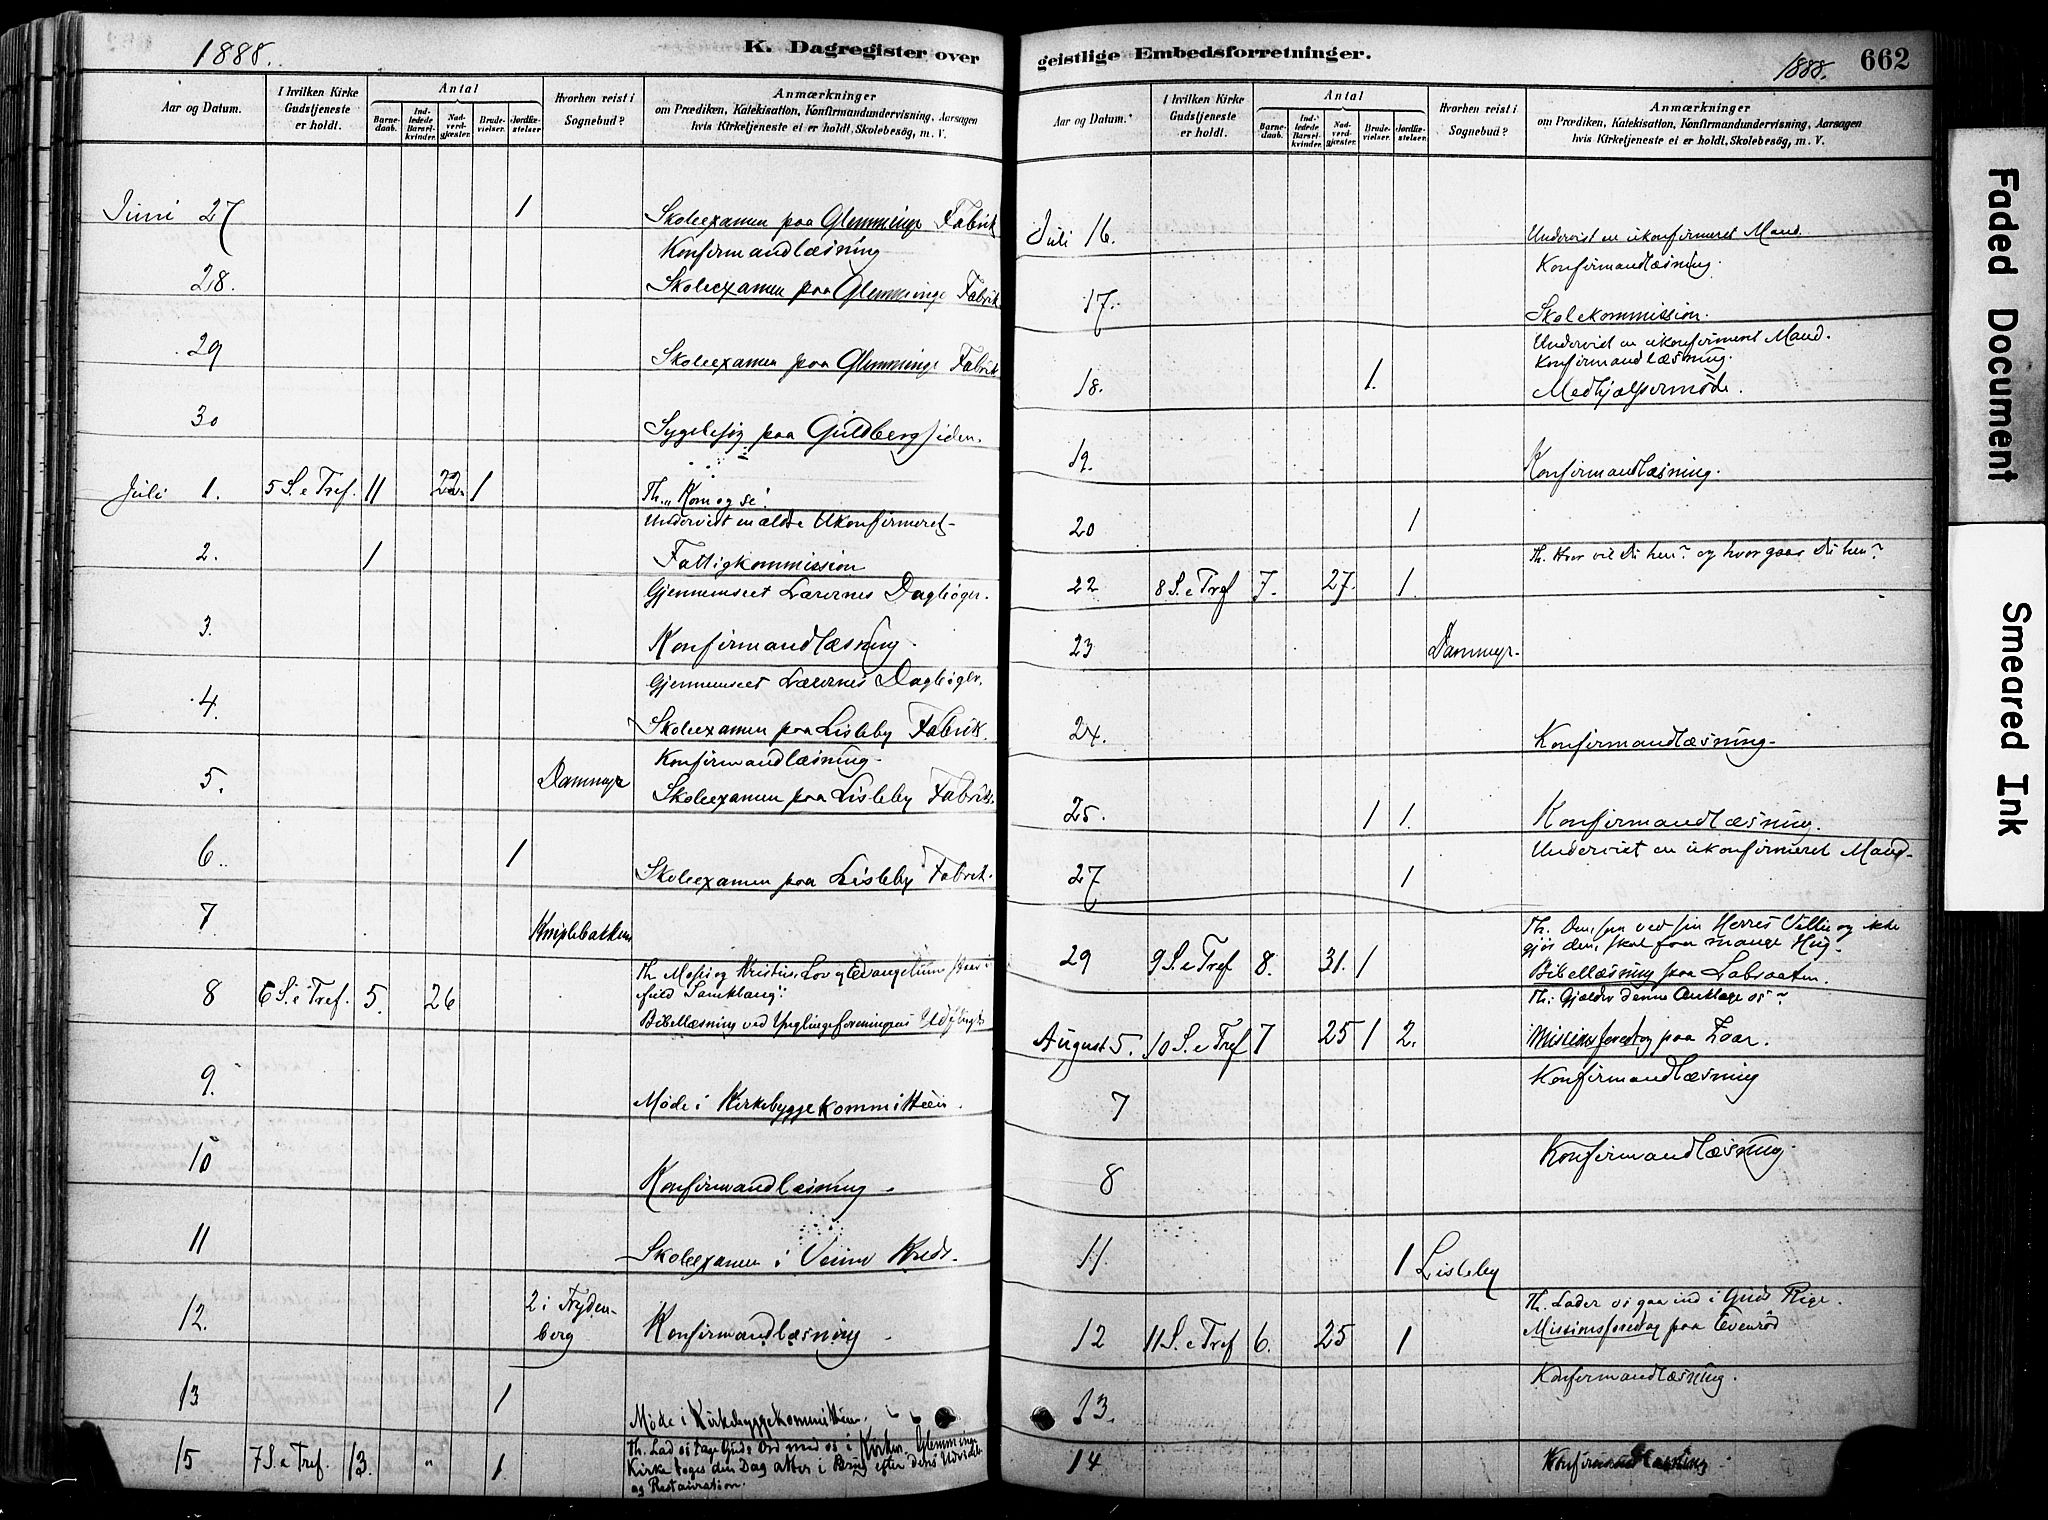 1888.
K. Dagregister over
Aar og Datum.
I hvilken Kirke Gudstjeneste er holdt.
Antal
Barnedaab.
Indledede Barselkvinder.
Nadverdgjæster.
Brudevielser.
Jordfæstelser.
Hvorhen reist i Sognebud?
Anmærkninger
om Prædiken, Katekisation, Konfirmandundervisning, Aarsagen
hvis Kirketjeneste ei er holdt, Skolebesög, m. V.
Juni 27 1 Skoleexamen paa Glemminge Fabrik
Konfirmandlæsning
28. Skoleexamen paa Glemminge Fabrik.
29 Skoleexamen paa Glemminge Fabrik
30 Sygebesøg paa Guldbergsiden.
Juli 1. 5 S. e Tref. 11 22. 1 Th. "Kom og se!
Undervist en ældre Ukonfirmeret
2. 1 Fattigkommission
Gjennemseet Lærernes Dagbøger.
3. Konfirmandlæsning.
Gjennemseet Lærernes Dagbøger.
4. Skoleexamen paa Lisleby Fabrik.
Konfirmandlæsning.
5. Dammyr Skoleexamen paa Lisleby Fabrik.
6. 1 Skoleexamen paa Lisleby Fabrik.
7. Kniplebakken
8 6 S. e Tref. 5. 26 Th. Moses og Kristus, Lov og Evangelium,
fuld Samklang".
Bibellæsning ved Ynglingeforeningens
9. Møde i Kirkebyggekommitteen.
10 Konfirmandlæsning.
11 Skoleexamen i Kreds.
12. 2 i Frydenberg Konfirmandlæsning.
13 1 Møde i Kirkebyggekommitteen.
15 7 S. e Tref. 13. " 1. Th. Lad os tage Guds Ord med os i Kirken. Glemminge
Kirke toges den Dag atter i Brug efter dens Udvidelse
og Restauration.
geistlige Embedsforretninger.
1888.
662
Aar og Datum.
I hvilken Kirke Gudstjeneste er holdt.
Antal
Barnedaab.
Indledede Barselkvinder.
Nadverdgjæster.
Brudevielser.
Jordfæstelser.
Hvorhen reist i Sognebud?
Anmærkninger
om Prædiken, Katekisation, Konfirmandundervisning, Aarsagen
hvis Kirketjeneste ei er holdt, Skolebesög, m. V.
Juli 16. Undervist en ukonfirmeret Mand.
Konfirmandlæsning.
17. Skolekommission.
Undervist en ukonfirmeret Mand.
Konfirmandlæsning.
18. 1. Medhjælpermøde.
19. Konfirmandlæsning.
20 1
Th. Hvor vil Du hen? og hvor gaar Du hen?
22 8 S. e Tref 7. 27. 1.
23 Dammyr.
24. Konfirmandlæsning.
25. 1 1. Konfirmandlæsning.
Undervist en ukonfirmeret Mand.
27 1
Th. Den, som ved sin Herres Villie og ikke
gjør den, skal faa mange Hug.
29 9 S. e Tref 8. 31. 1 Bibellæsning paa Labraaten.
Th: Gjælder denne Anklage os?
August 5. 10 S. e Tref 7 25 1 2. Missionsforedrag paa Zoar.
Konfirmandlæsning
7
Konfirmandlæsning.
8
11. 1 Lisleby
Th. Lader os gaa ind i Guds Rige.
12 11 S. e Tref 6. 25 1 Missionsforedrag paa Evenrød
Konfirmandlæsning.
13.
14 Konfirmandlæsning
Faded Document
Smeared Ink